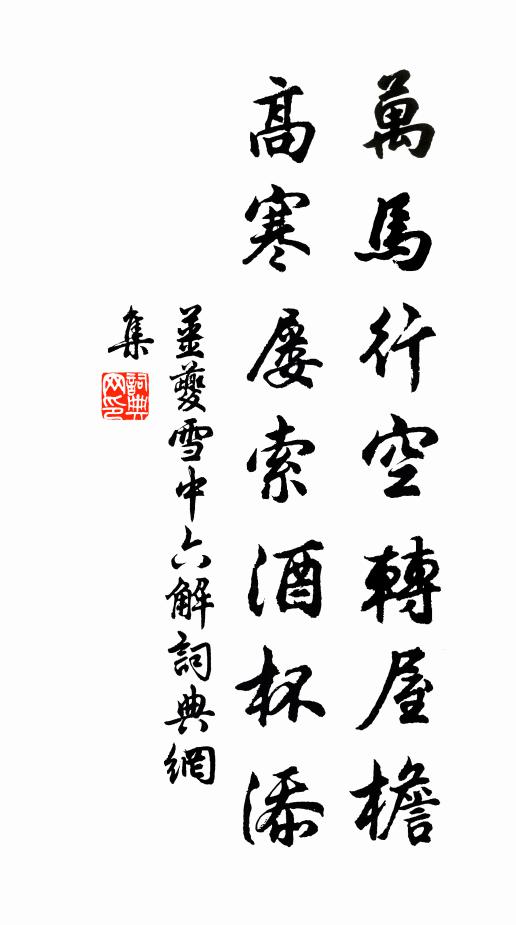 萬馬行空轉屋檐
高寒屡索酒杯添
姜夔雪中六解詞典網
集
詞典网印